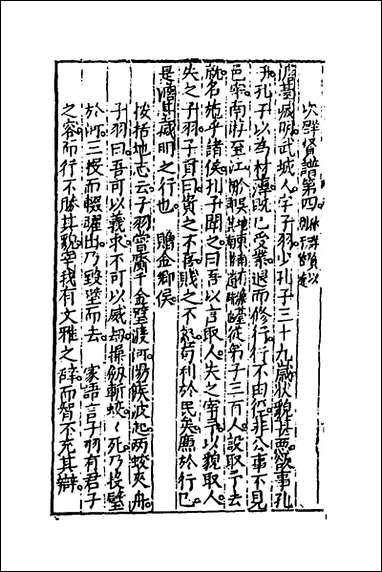 次群賢譜第四
澹臺滅明武城人字子羽少孔子三十九歲狀貌甚惡欲事孔
子孔子以為材薄既已受業退而修行行不由徑非公事不見
邑宰南游至江從弟子三百人設取予去
就名施乎諸侯孔子聞之曰吾以言取人失之宰予以貌取人
失之子羽子貢曰貴之不喜賤之不怒苟利於民矣廉於行己
是澹臺滅明之行也 贈金鄉侯
按括地志云子羽嘗齎千金璧渡河陽侯波起兩蛟夾舟
子羽曰吾可以義求不可以威劫操劒斬蛟〻死乃投璧
於河三投而輒躍出乃毀璧而去 家語言子羽有君子
之容而行不勝其貌宰我有文雅之辭而智不充其辯